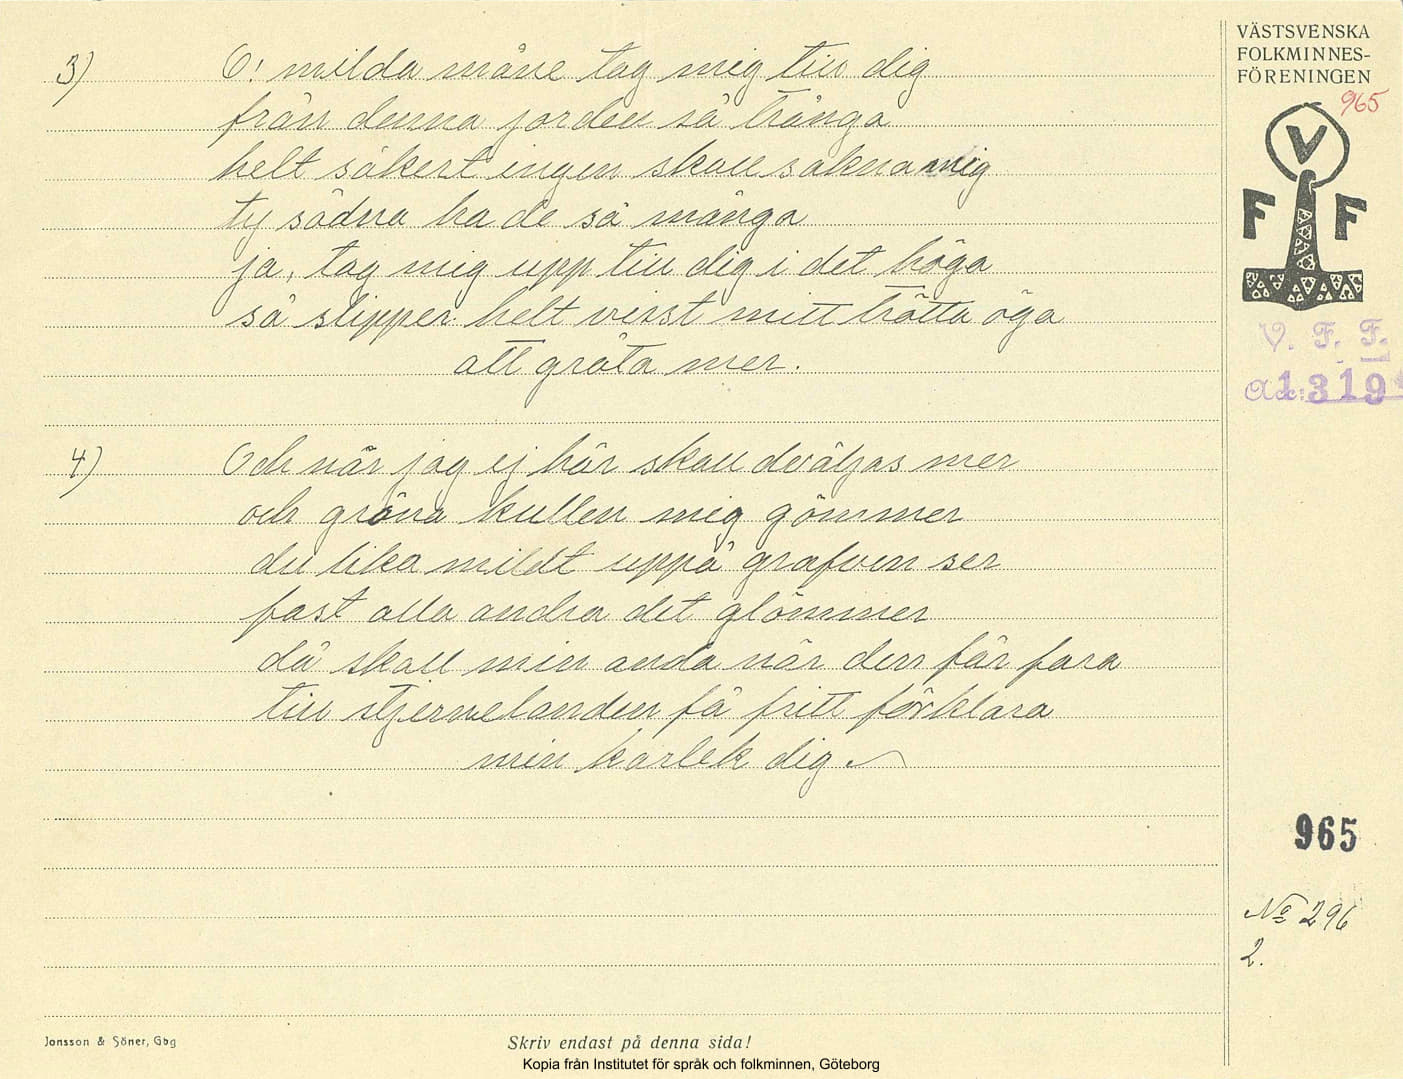 3) O! milda måne tag mig till dig
från denna jorden så trånga
helt säkert ingen skall sakna mig
ty sådna ha de så många
ja, tag mig upp till dig i det höga
så slipper helt visst mitt trötta öga
att gråta mer.
4) Och när jag ej här skall dväljas mer
och gröna kullen mig gömmer
du lika mildt uppå grafven ser
fast alla andra det glömmer
då skall min anda när den får fara
till stjernelanden få fritt förklara
min karlek dig.
VÄSTSVENSKA
FOLKMINNES-
FÖRENINGEN
965
V
F F
V. F. F.
Acc: 1319
965
No 296
2.
Jonsson & Söner, Gbg
Skriv endast på denna sida!
Kopia från Institutet för språk och folkminnen, Göteborg